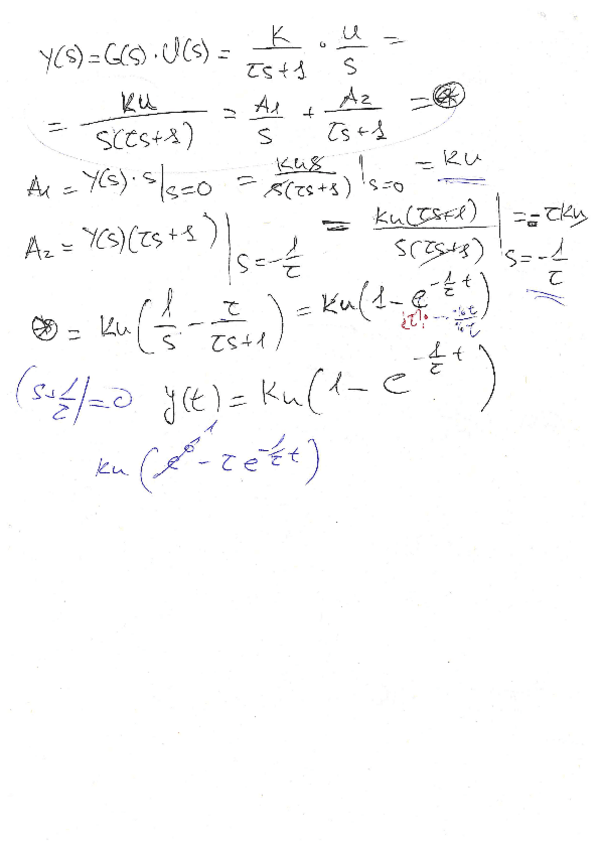 Y(s) = G(s) · U(s) = K/(τs+1) · u/s =
= Ku/(s(τs+1)) = A1/s + A2/(τs+1) = ⊛
A1 = Y(s) · s |s=0 = Kus/(s(τs+1)) |s=0 = Ku
A2 = Y(s)(τs+1) |s=-1/τ = Ku(τs+1)/(s(τs+1)) |s=-1/τ = -τKu
⊛ = Ku(1/s - τ/(τs+1)) = Ku(1 - e^(-1/τ t))
(s+1/τ) = 0 y(t) = Ku(1 - e^(-1/τ t))
Ku(e^0 1 - τe^(-1/τ t))